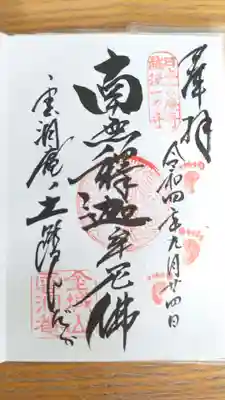 奉拝
令和四年九月廿四日
南無釋迦牟尼佛
雲洞庵ノ土踏んだか